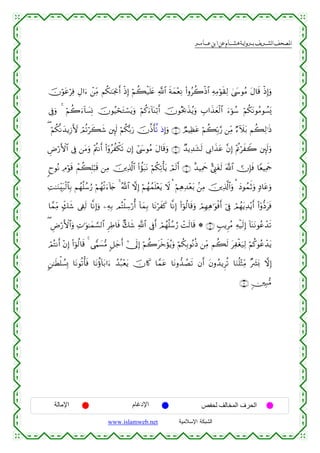 المصحف الشريف برواية هشام عن ابن عامر
وَإِذْ قَالَ مُوسَىٰ لِقَوْمِهِ اذْكُرُوا نِعْمَةَ اللَّهِ عَلَيْكُمْ إِذْ أَنجَىٰكُم مِّنْ ءَالِ فِرْعَوْنَ
يَسُومُونَكُمْ سُوءَ الْعَذَابِ وَيُذَبِّحُونَ أَبْنَاءَكُمْ وَيَسْتَحْيُونَ نِسَاءَكُمْ وَفِي
ذَٰلِكُم بَلَاءٌ مِّن رَّبِّكُمْ عَظِيمٌ وَإِذْ تَأَذَّنَ رَبُّكُمْ لَئِن شَكَرْتُمْ لَأَزِيدَنَّكُمْ
وَلَئِن كَفَرْتُمْ إِنَّ عَذَابِي لَشَدِيدٌ وَقَالَ مُوسَىٰ إِن تَكْفُرُوا أَنتُمْ وَمَن فِي الْأَرْضِ
جَمِيعًا فَإِنَّ اللَّهَ لَغَنِيٌّ حَمِيدٌ أَلَمْ يَأْتِكُمْ نَبَؤُا الَّذِينَ مِن قَبْلِكُمْ قَوْمِ نُوحٍ
وَعَادٍ وَثَمُودَ وَالَّذِينَ مِن بَعْدِهِمْ لَا يَعْلَمُهُمْ إِلَّا اللَّهُ جَاءَتْهُمْ رُسُلُهُم بِالْبَيِّنَاتِ
فَرَدُّوا أَيْدِيَهُمْ فِي أَفْوَاهِهِمْ وَقَالُوا إِنَّا كَفَرْنَا بِمَا أُرْسِلْتُم بِهِ وَإِنَّا لَفِي شَكٍّ مِّمَّا
تَدْعُونَنَا إِلَيْهِ مُرِيبٍ قَالَتْ رُسُلُهُمْ أَفِي اللَّهِ شَكٌّ فَاطِرِ السَّمَاوَاتِ وَالْأَرْضِ
يَدْعُوكُمْ لِيَغْفِرَ لَكُم مِّن ذُنُوبِكُمْ وَيُؤَخِّرَكُمْ إِلَىٰ أَجَلٍ مُّسَمًّى قَالُوا إِنْ أَنتُمْ
إِلَّا بَشَرٌ مِّثْلُنَا تُرِيدُونَ أَن تَصُدُّونَا عَمَّا كَانَ يَعْبُدُ ءَابَاؤُنَا فَأْتُونَا بِسُلْطَانٍ
مُّبِينٍ
الحرف المخالف لحفص الإدغام الإمالة
الشبكة الإسلامية www.islamweb.net